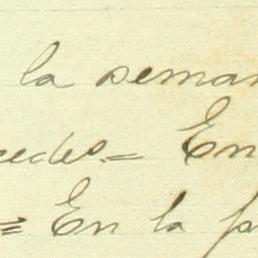 la seman
cedes.= En
= En la p